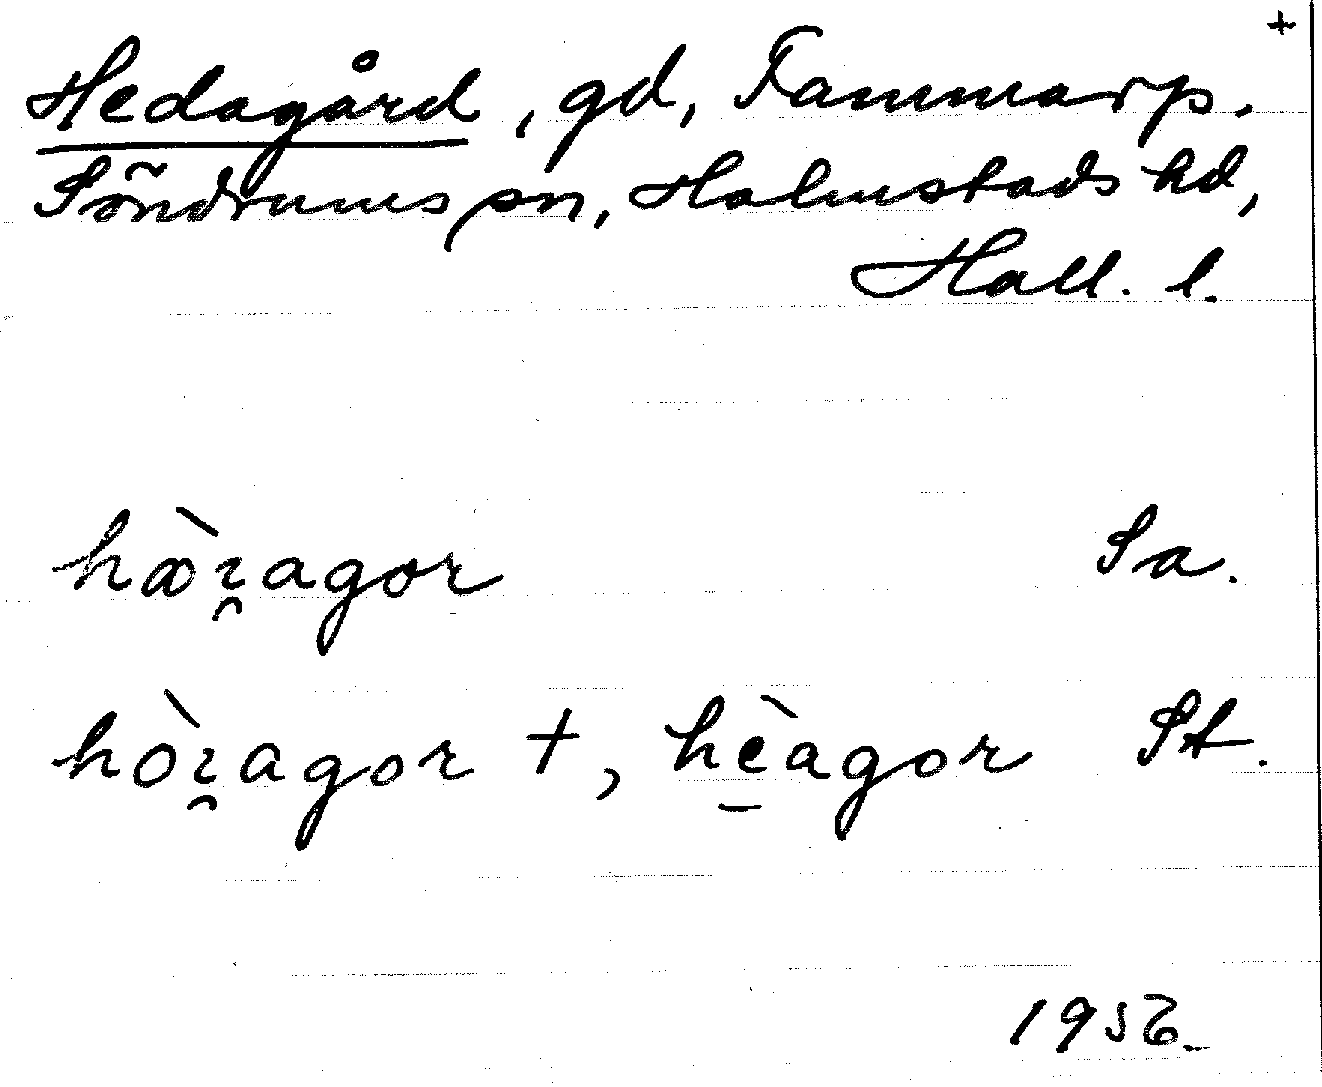 +
Hedagård, gd, Tammarp.
Söndrums sn, Halmstads hd,
Hall. l.
hæ̀ɿ̯agor Sa.
hòɿ̯agor +, hè̱agor St.
1956